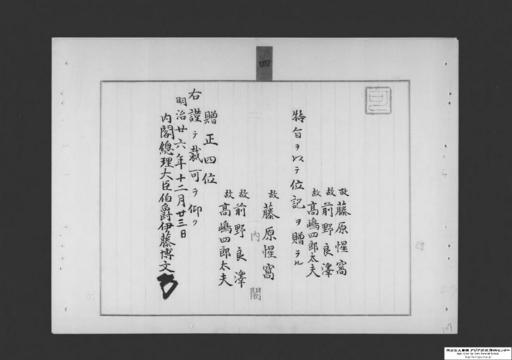 四
故藤原惺窩
故前野良澤
故高嶋四郎太夫
特旨ヲ以テ位記ヲ贈ラル
故藤原惺窩
故前野良澤
故高嶋四郎太夫
贈正四位
右謹テ裁可ヲ仰ク
明治廿六年十二月廿三日
内閣總理大臣伯爵伊藤博文
内閣